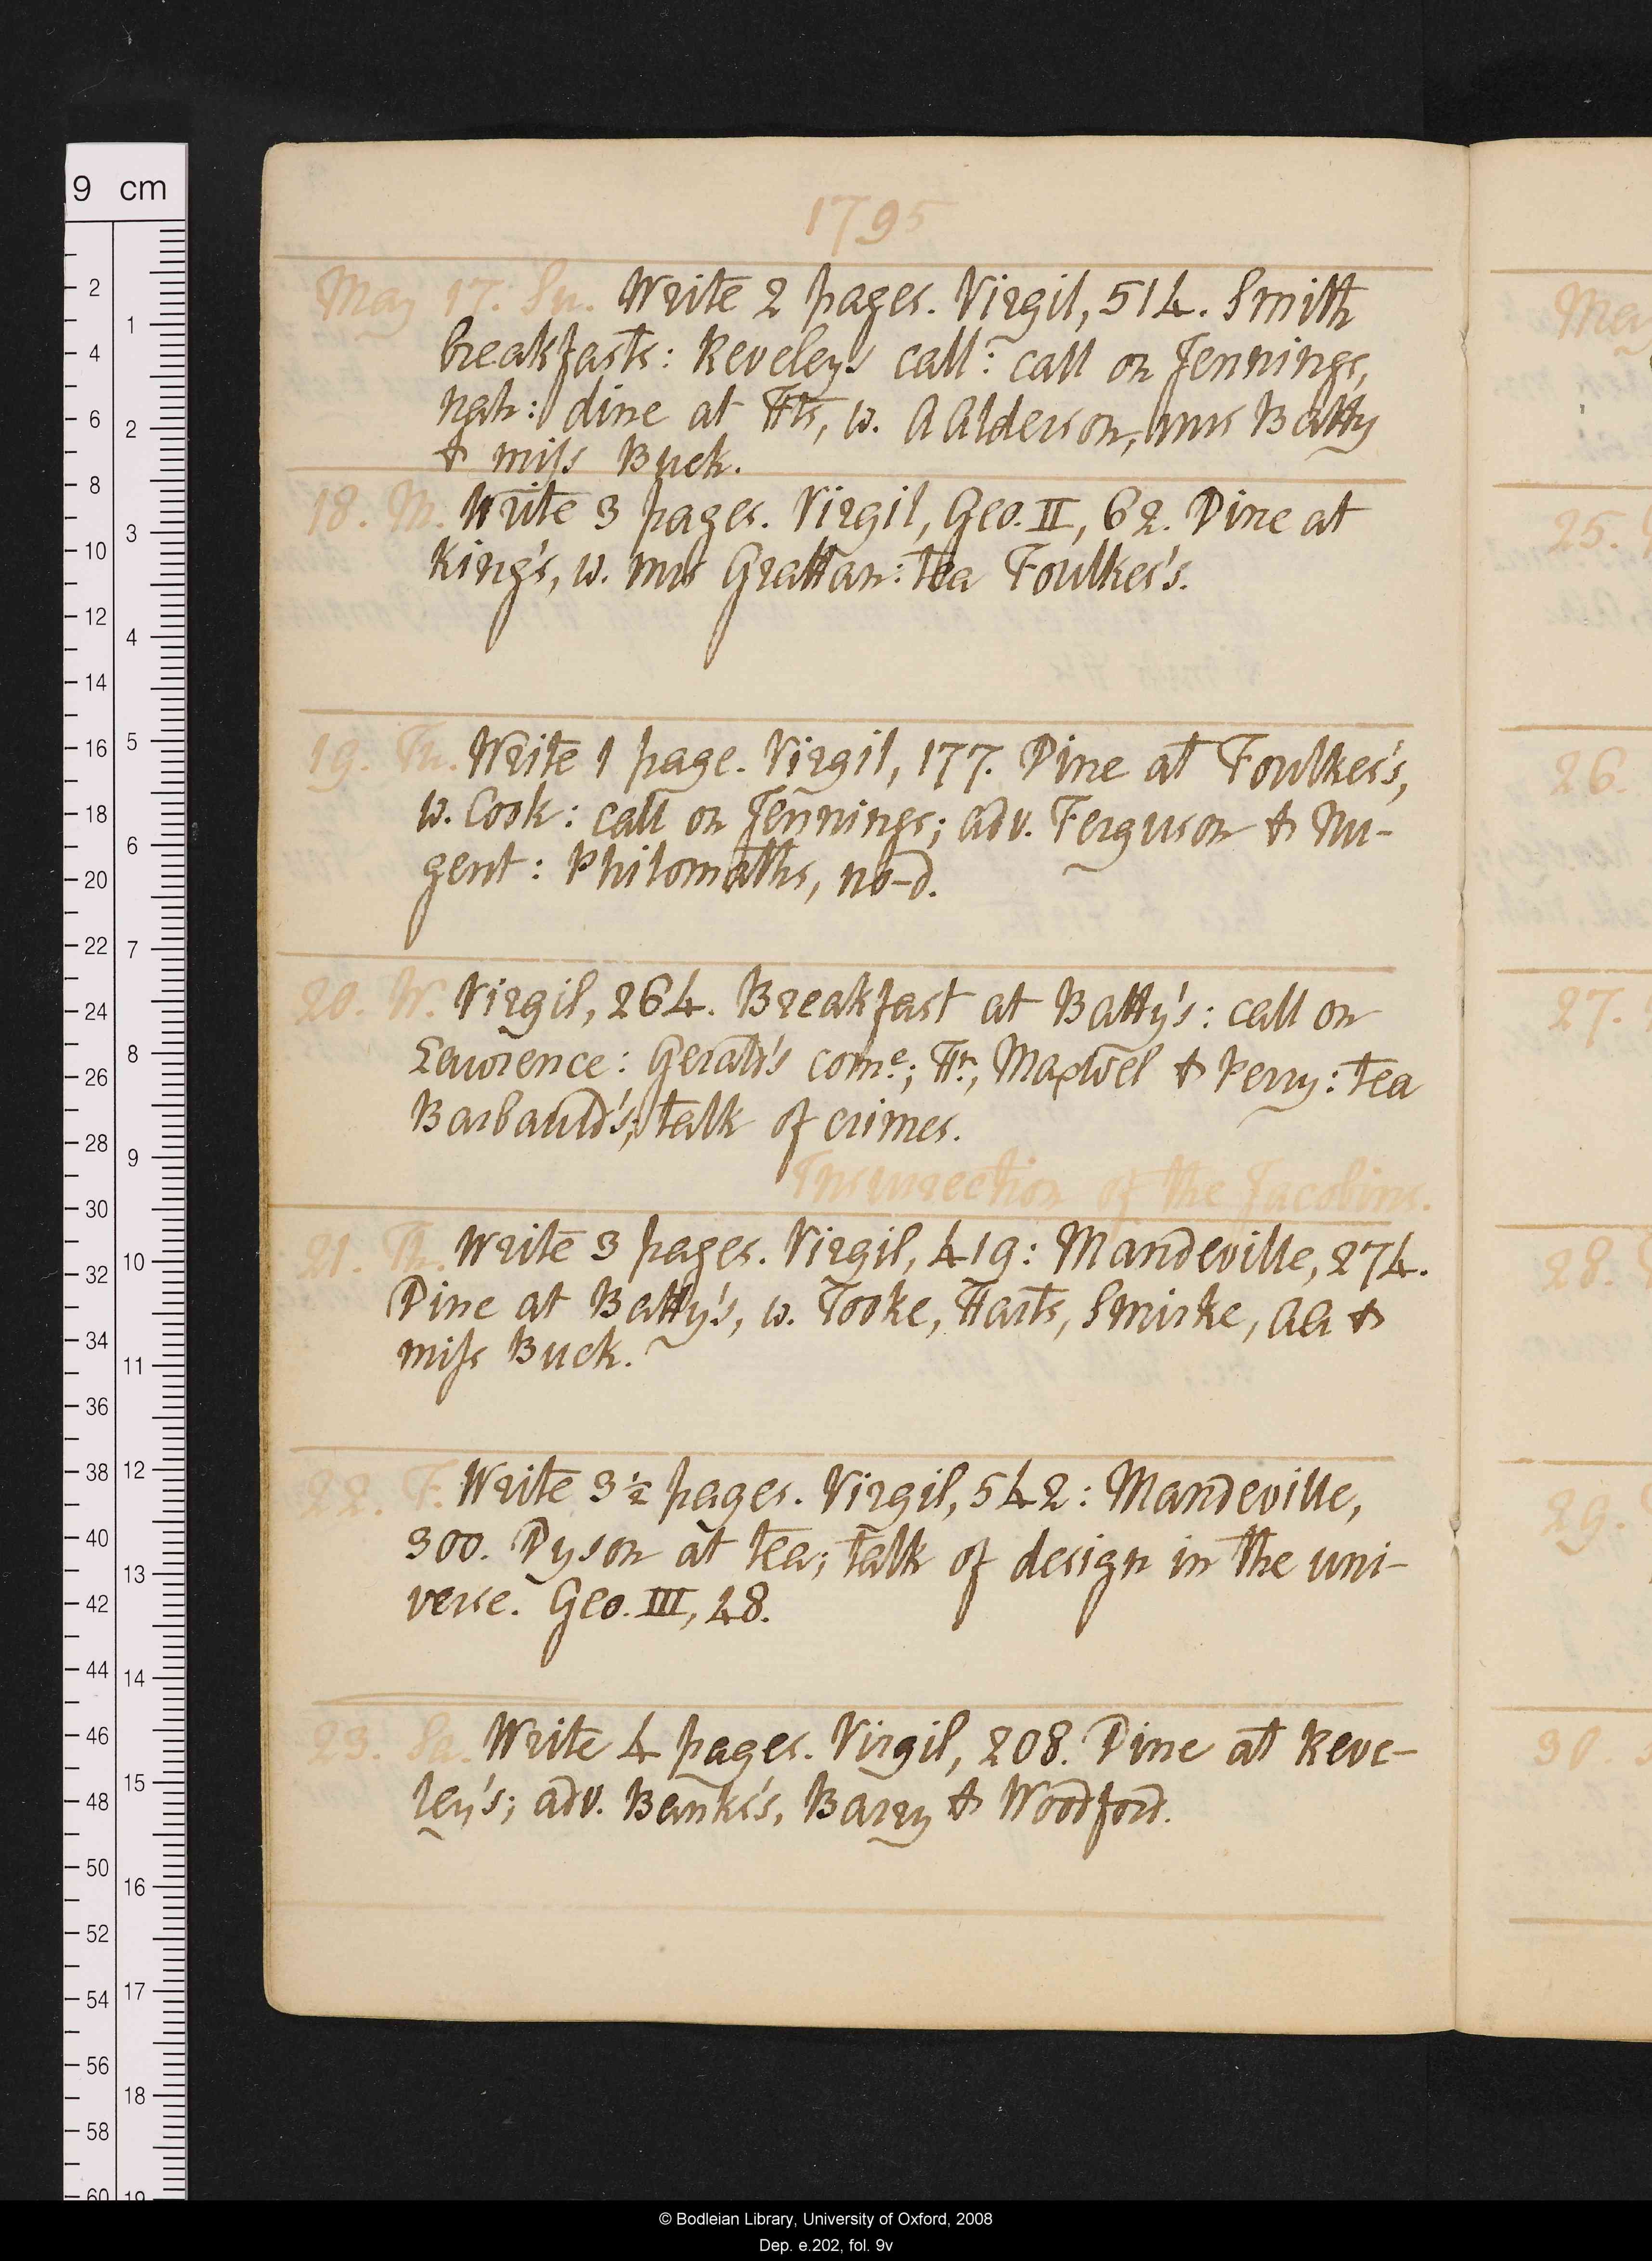 9 cm
1795
May 17. Su. Write 2 pages. Virgil, 514. Smith
breakfasts: Reveleys call: call on Jennings,
nah: dine at Hts, w. A Alderson, mrs Batty
& miss Buck.
18. M. Write 3 pages. Virgil, Geo. II, 62. Dine at
King's, w. mrs Grattan: tea Foulkes's.
19. Tu. Write 1 page. Virgil, 177. Dine at Foulkes's,
w. Cook: call on Jennings; adv. Ferguson & Nu-
gent: Philomaths, no-d.
20. W. Virgil, 264. Breakfast at Batty's: call on
Lawrence: Gerald's come; Hr, Maxwel & Perry: tea
Barbauld's; talk of crimes.
Insurrection of the Jacobins.
21. Th. Write 3 pages. Virgil, 419: Mandeville, 274.
Dine at Batty's, w. Tooke, Harts, Smirke, AA &
miss Buck.
22. F. Write 3½ pages. Virgil, 542: Mandeville,
300. Dyson at tea; talk of design in the uni-
verse. Geo. III, 48.
23. Sa. Write 4 pages. Virgil, 208. Dine at Reve-
ley's; adv. Banks's, Barry & Woodford.
May
25.
26.
27.
28.
29.
30.
© Bodleian Library, University of Oxford, 2008
Dep. e.202, fol. 9v